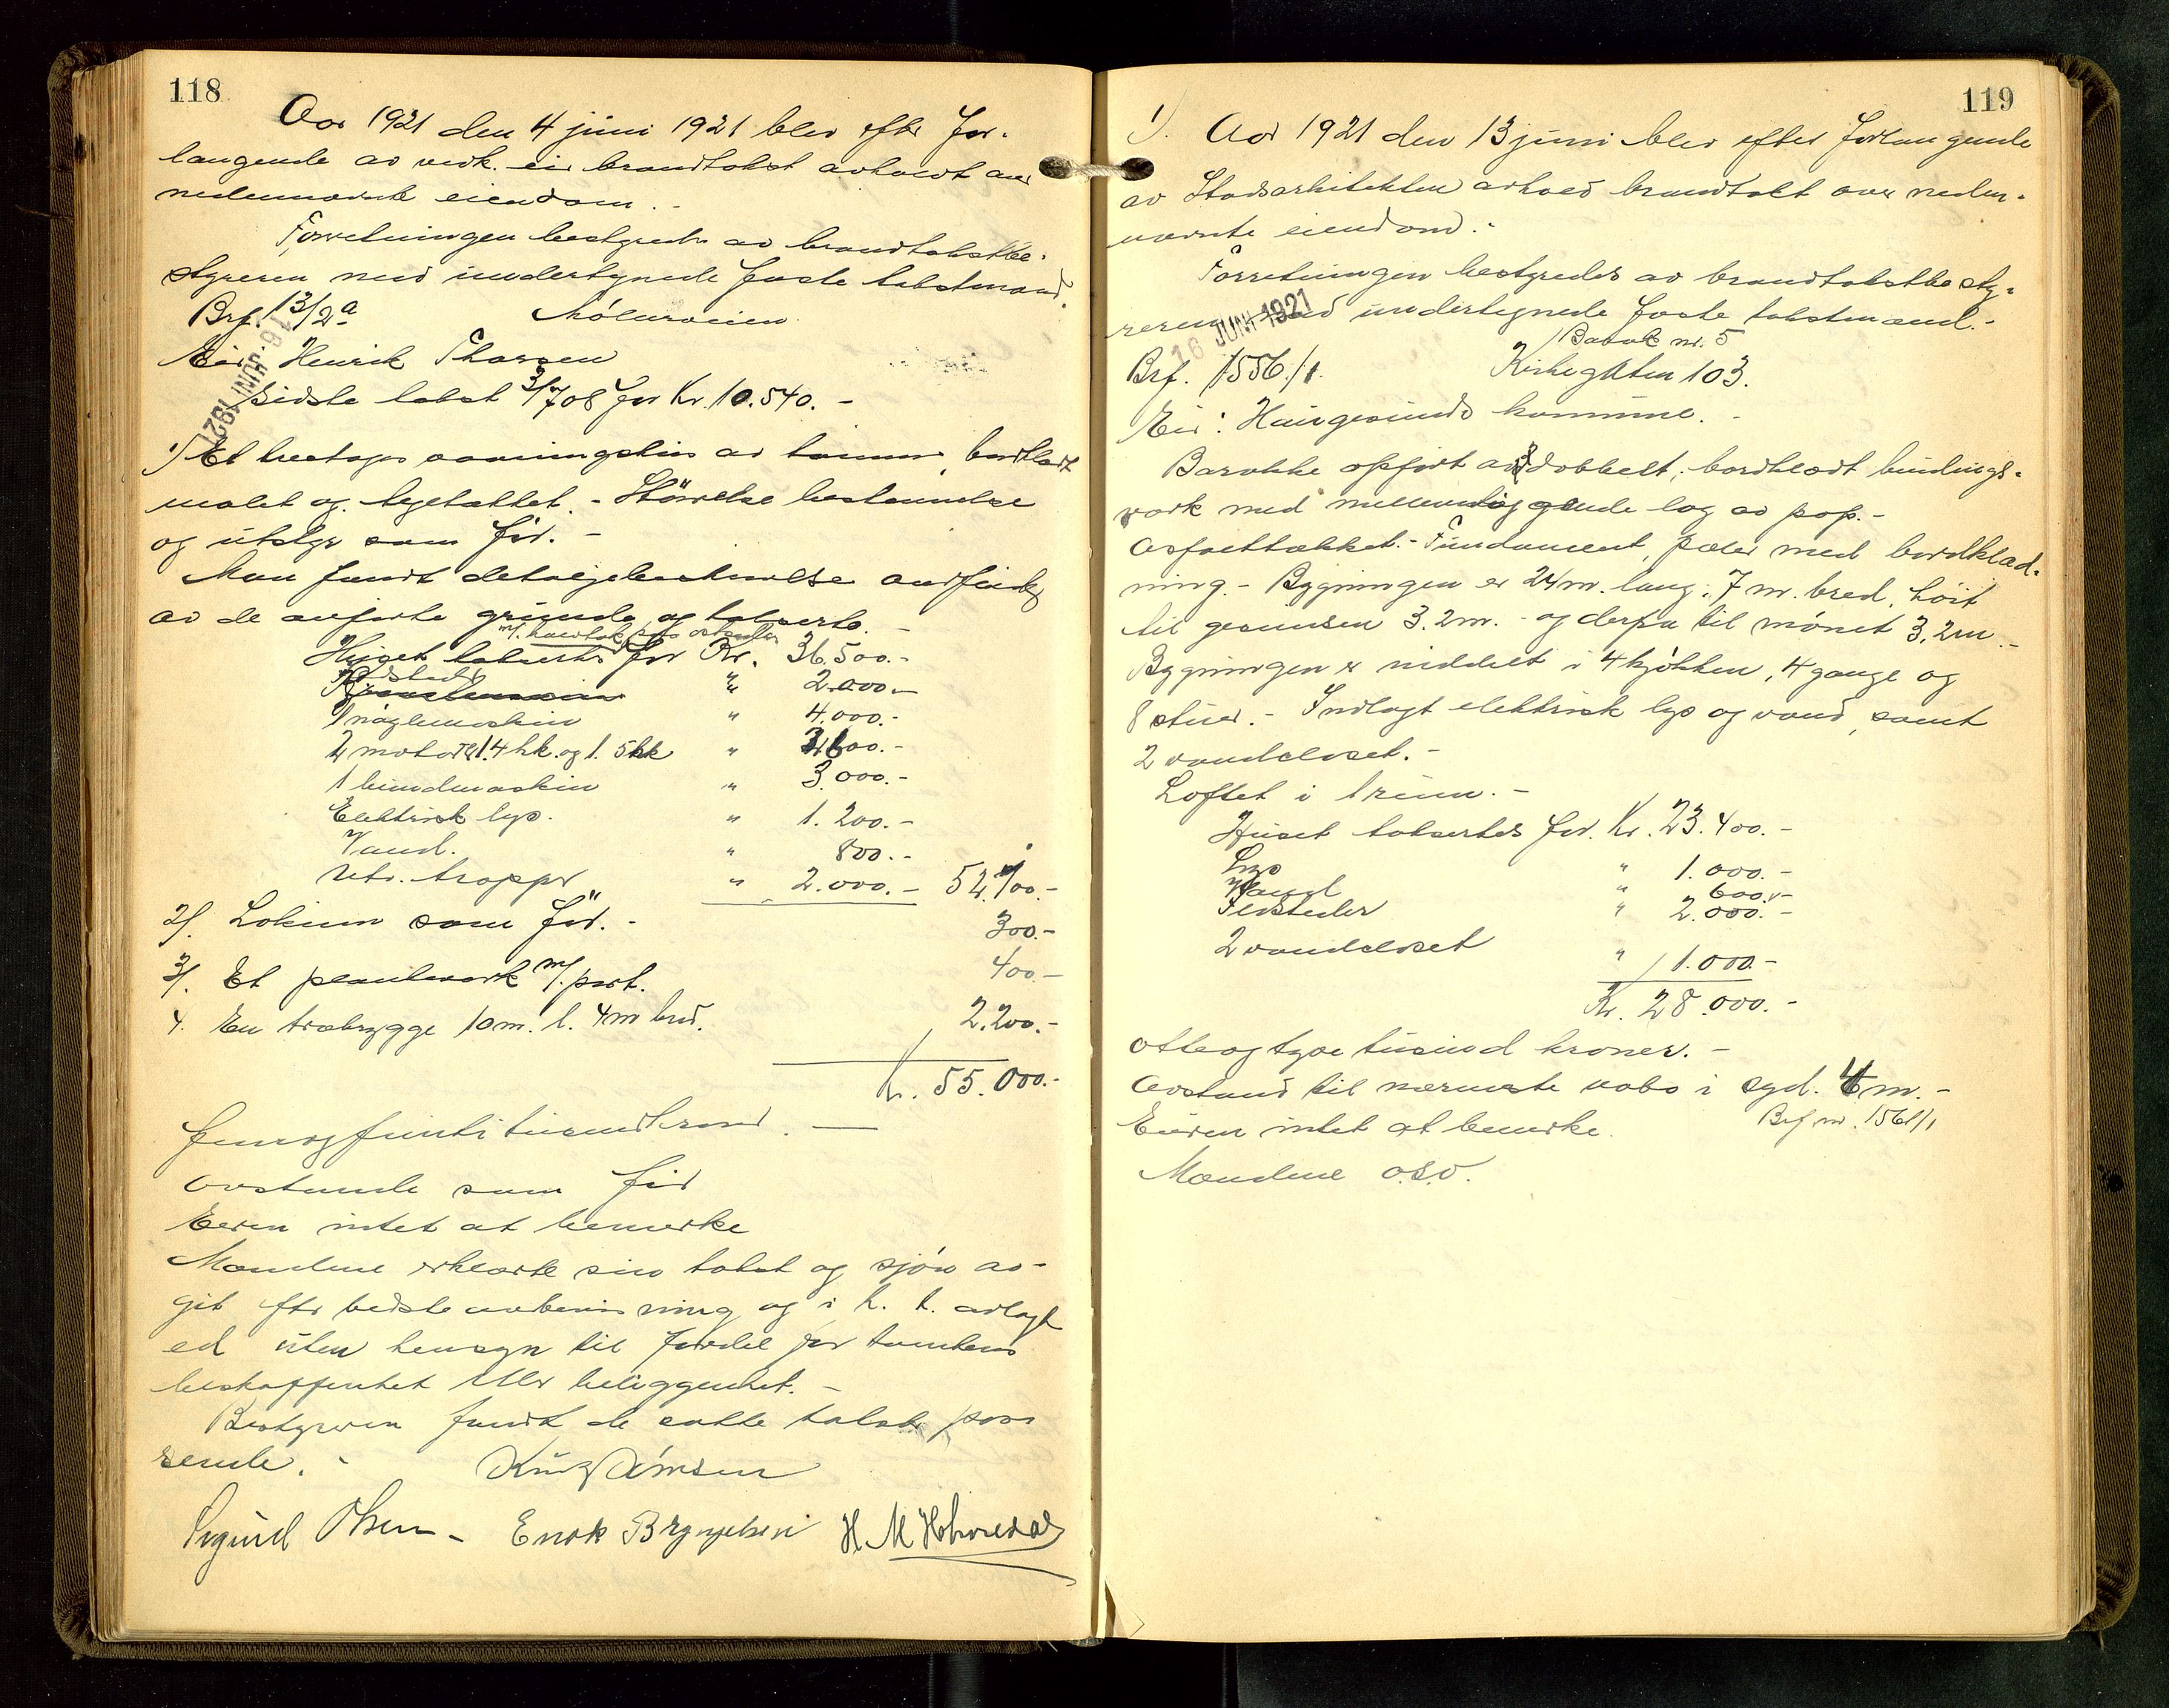 118
Aar 1921 den 4 juni 1921 blev efter for-
langende av vedk. eier brandtakst avholdt over
nedennævnte eiendom. -
Forretningen bestyredes av brandtakstbe-
styreren med undertegnede faste takstmænd.
Brf. 13/2a Mølleveien
Eier Henrik Thorsen
Sidste takst 3/7 08 for Kr. 10.540. -
16 JUNI 1921
1) Et treetages vaaningshus av tømmer, bordklædt
malet og tegltækket. - Størrelse beskrivelse
og utstyr som før. -
Man fandt detaljebeskrivelse
av de anførte grunde og takserte. -
Huset taksertes for Kr. 36.500.-
Ildsteder " 2.000.-
1 naglemaskin " 4.000.-
2 motorer 1. 4 hk. og 1. 5 hk "
1 bundmaskin " 3.000.-
Elektrisk lys. " 1.200.-
Vand. " 800.-
Utv. trapper " 2.000.-
2). Lokum som før. - 300.-
3). Et plankverk m/. port. 400.-
4. En træbrygge 10 m. l. 4 m bred. 2.200.-
Kr. 55.000.-
femogfemti tusind kroner. -
Avstande som før
Eieren intet at bemerke
Mændene erklærte sin takst og sjøn av-
git efter bedste overbevisning og i h. t. avlagt
ed uten hensyn til fordel for tomtens
beskaffenhet eller beliggenhet. -
Bestyreren fandt de satte takster pas-
sende. -
Sigurd Olsen - Enok Bryngelsen H M
119
1). Aar 1921 den 13 juni blev efter forlangende
av Stadsarkitekten avhold brandtakst over neden-
nævnte eiendom. -
Forretningen bestyredes av brandtakstbesty-
reren med undertegnede faste takstmænd. -
16 JUNI 1921
Barak nr. 5
Brf. 1556/1. Kirkegaten 103.
Eier: Haugesunds kommune. -
Barakke opført av dobbelt, bordklædt bindings-
verk med mellemliggende lag av pap. -
Asfalttækket. - Fundament, pæler med bordklæd-
ning. - Bygningen er 24 m. lang, 7 m. bred, høit
til gesimsen 3.2 m. - og derfra til mønet 3.2 m. -
Bygningen er inddelt i 4 kjøkken, 4 gange og
8 stuer. - Indlagt elektrisk lys og vand, samt
2 vandcloset. -
Loftet i 1 rum. -
Huset taksertes for. Kr. 23.400.-
Lys " 1.000.-
Vand " 600.-
Ildsteder " 2.000.-
2 vandcloset " 1.000.-
Kr. 28.000.-
otteogtyve tusind kroner. -
Avstand til nærmeste nabo i syd. m. -
Brf nr. 1561/1
Eieren intet at bemerke.
Mændene o.s.v.